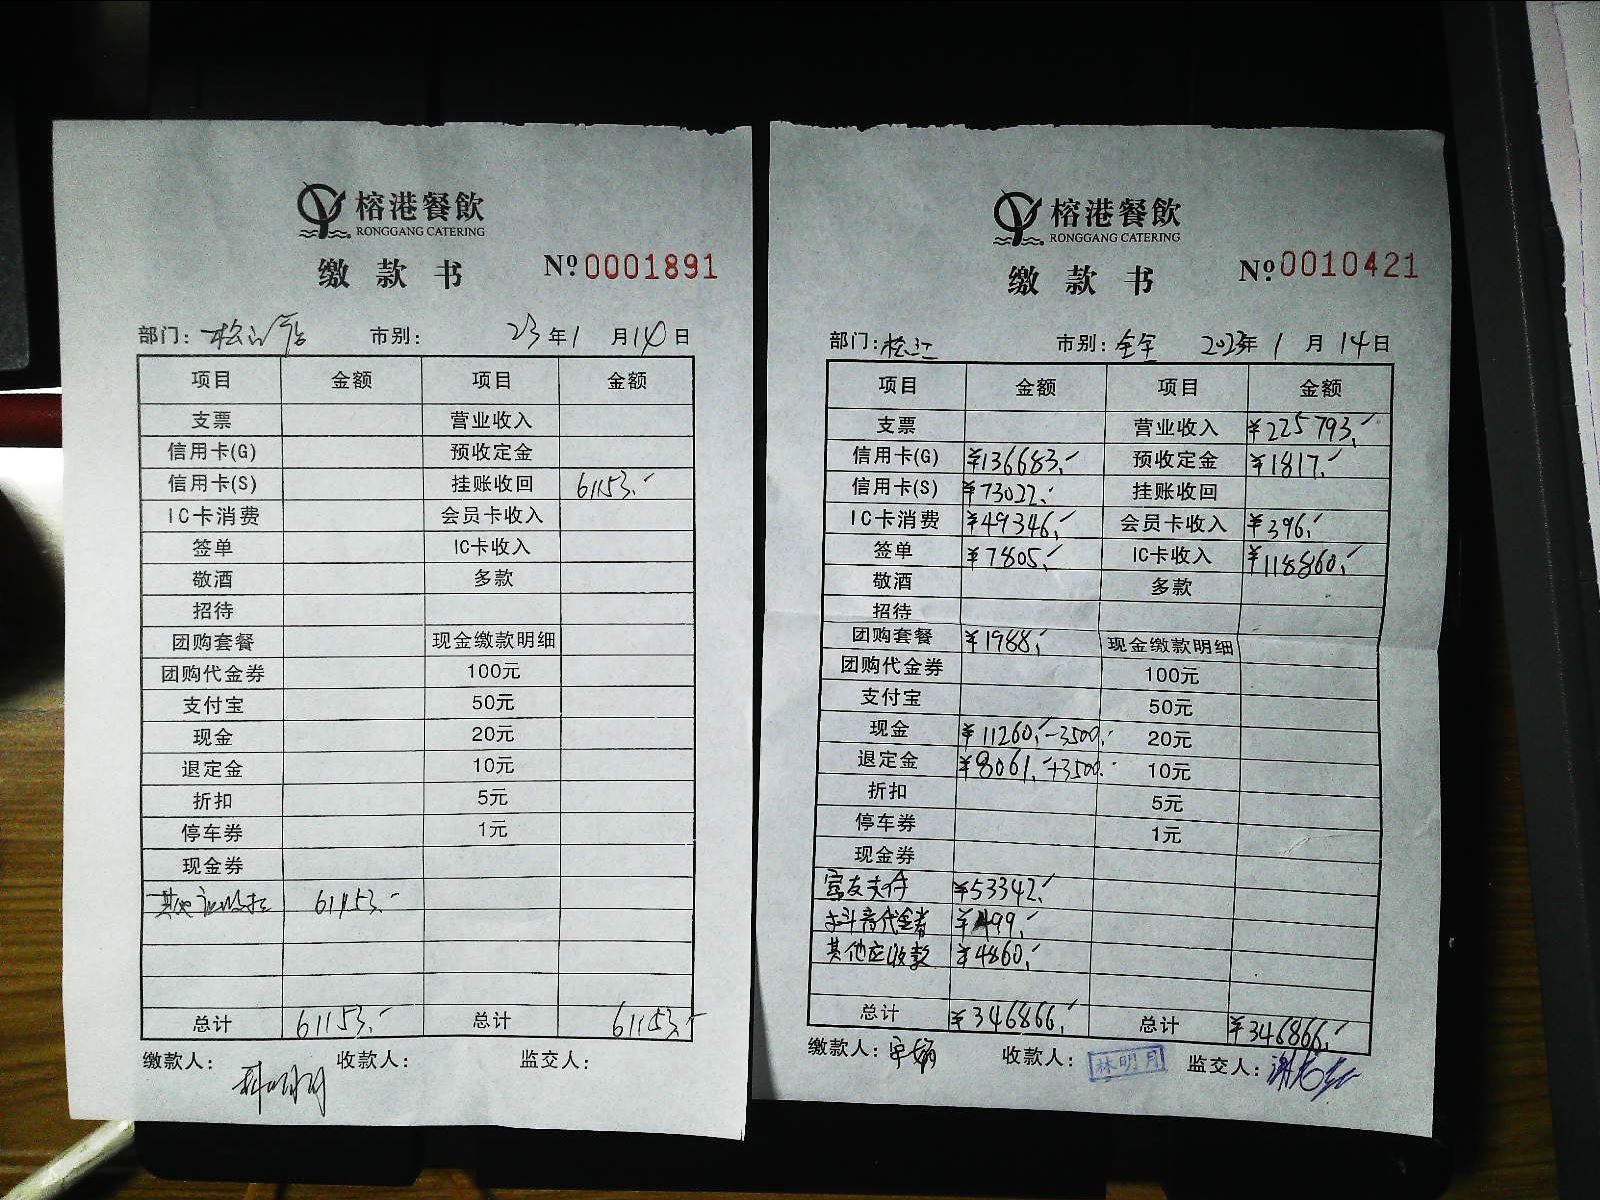 榕港餐飲
RONGGANG CATERING
缴款书 № 0001891
部门: 松江店 市别: 23年1月14日
项目 金额 项目 金额
支票 营业收入
信用卡(G) 预收定金
信用卡(S) 挂账收回 61153.-
IC卡消费 会员卡收入
签单 IC卡收入
敬酒 多款
招待
团购套餐 现金缴款明细
团购代金券 100元
支付宝 50元
现金 20元
退定金 10元
折扣 5元
停车券 1元
现金券
其他应收款 61153.-
总计 61153.- 总计 61153.-
缴款人: 收款人: 监交人:
榕港餐飲
RONGGANG CATERING
缴款书 № 0010421
部门: 松江 市别: 全 2023年1月14日
项目 金额 项目 金额
支票 营业收入 ¥225793.-
信用卡(G) ¥136683.- 预收定金 ¥1817.-
信用卡(S) ¥73022.- 挂账收回
IC卡消费 ¥49346.- 会员卡收入 ¥396.-
签单 ¥7805.- IC卡收入 ¥118860.-
敬酒 多款
招待
团购套餐 ¥1988.- 现金缴款明细
团购代金券 100元
支付宝 50元
现金 ¥11260.-3500.- 20元
退定金 ¥8061.+3500.- 10元
折扣 5元
停车券 1元
现金券
富友支付 ¥53342.-
抖音代金券 ¥499.-
其他应收款 ¥4860.-
总计 ¥346866.- 总计 ¥346866.-
缴款人: 收款人: 林明月 监交人: